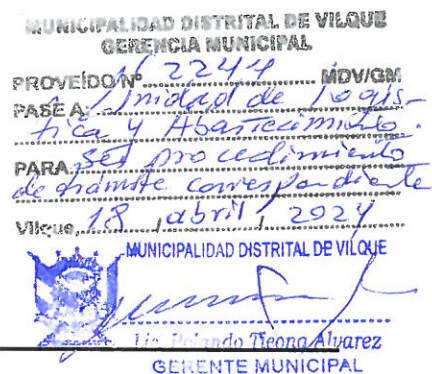 MUNICIPALIDAD DISTRITAL DE VILQUE
GERENCIA MUNICIPAL
PROVEÍDO Nº 2244 MDV/GM
PASE A: Unidad de Logís-
tica y Abastecimiento.
PARA Set procedimiento
de trámite correspondiente
Vilque, 18 abril, 2024
MUNICIPALIDAD DISTRITAL DE VILQUE
Lic. Rolando Ticona Alvarez
GERENTE MUNICIPAL